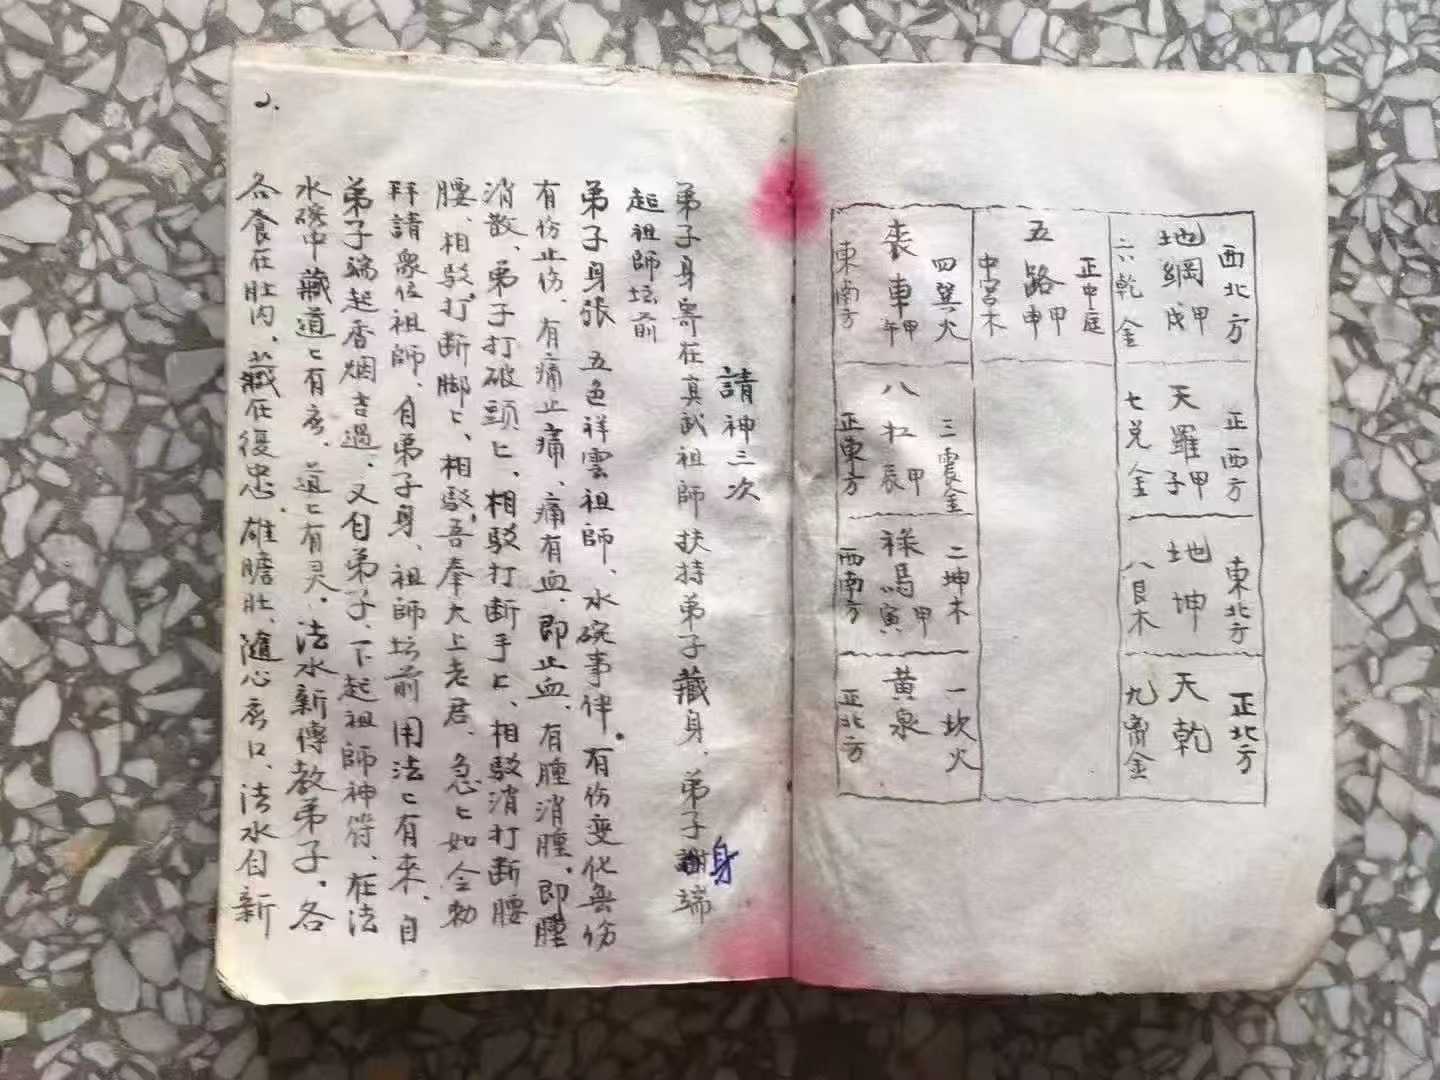 西北方
地網 甲戌
六乾金
正西方
天羅 甲子
七兑金
東北方
地坤
八艮木
正北方
天乾
九
金
正中庭
五路 甲申
中宮木
四巽火
喪車 甲午
東南方
三震金
八杠 甲辰
正東方
二坤木
祿馬 甲寅
西南方
一坎火
黄泉
正北方
請神三次
弟子身寄在真武祖師扶持弟子藏身、弟子身端
起祖師坛前
弟子身張 五色祥雲祖師、水碗事伴。有伤变化無伤
有伤止伤、有痛止痛、痛有血、即止血、有腫消腫、即腫
消散、弟子打破頭匕、相駁打断手匕、相駁消打断腰
腰、相駁打断脚匕、相駁、吾奉大上老君、急匕如令勅
拜請衆位祖師、自弟子身、祖師坛前用法匕有来、自
弟子端起香烟吉過、又自弟子、下起祖師神符、在法
水碗中藏道匕有
道匕有灵、法水新傳教弟子、各
各食在肚内、藏在復忠、雄膽肚、隨心
口、法水自新
2.